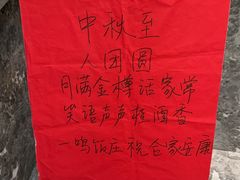 中秋至
人团圆
月满金樽话家常
笑语声声桂酒香
一鸣饭庄祝全家安康